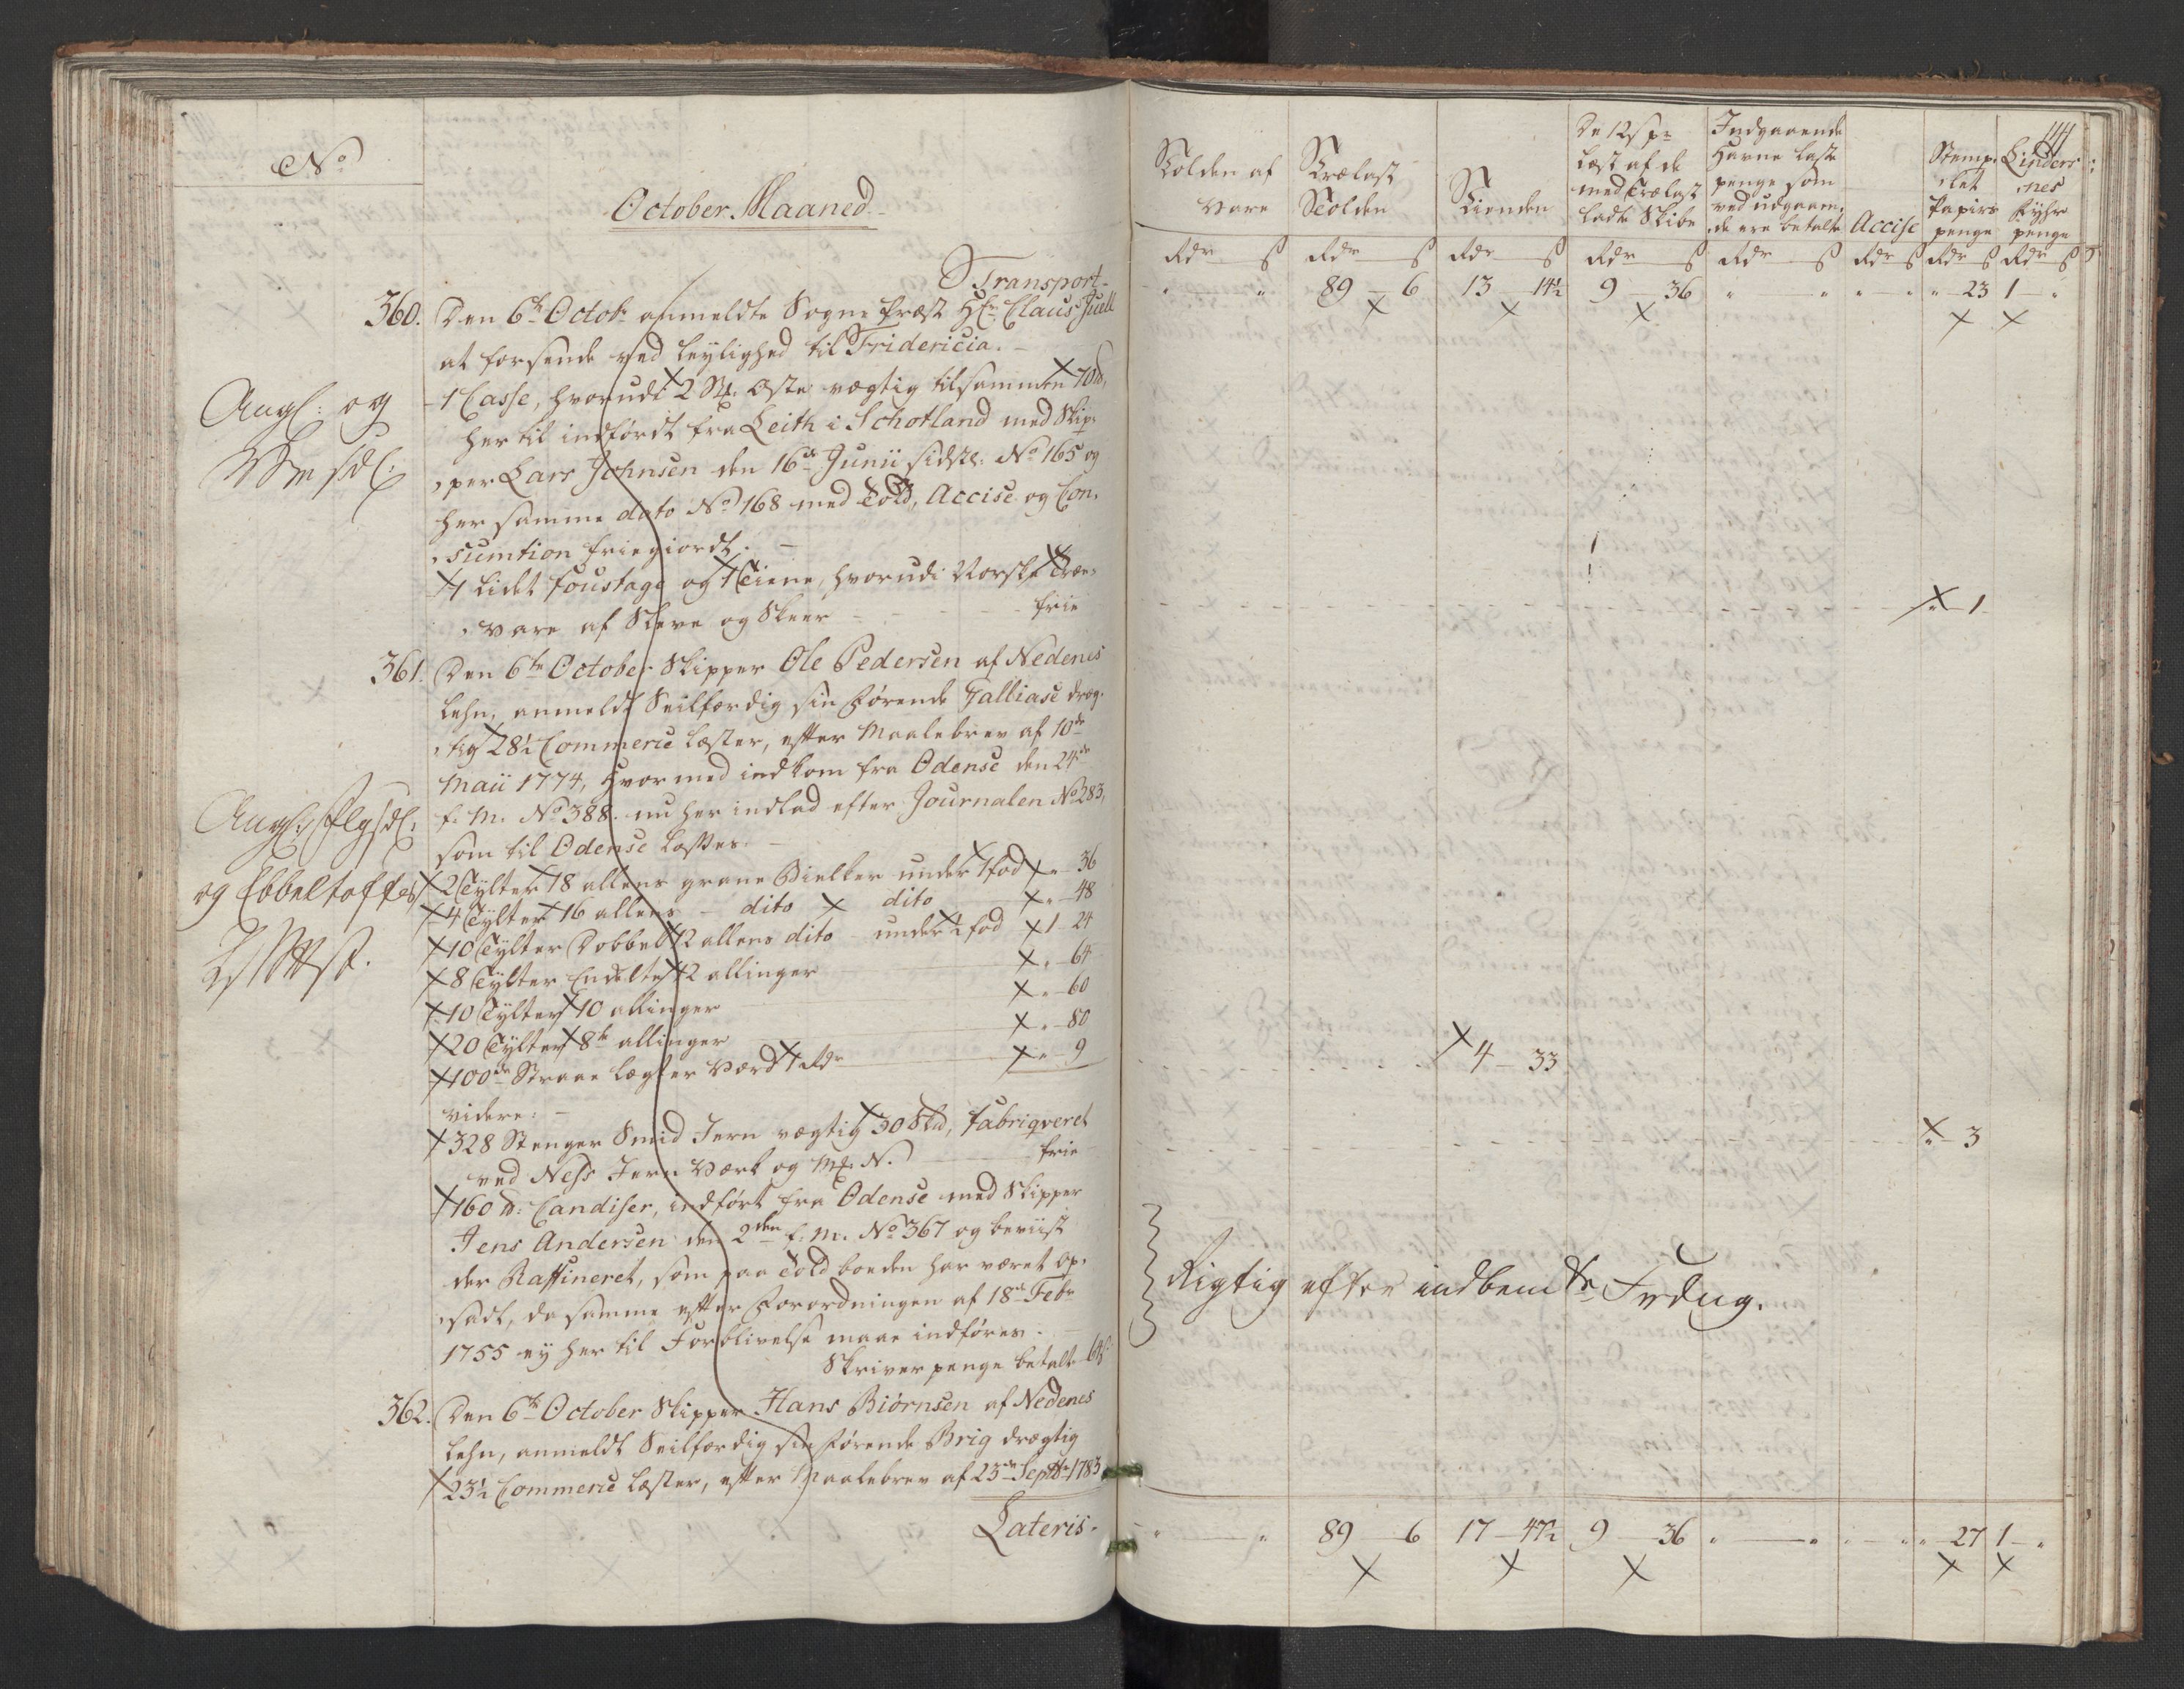 No
October Maaned
Transport
360. Den 6te Octobr anmeldte Sogne Præst Hr Claus Juell
at forsende ved leylighed til Fridericia.
1 Casse, hvorudi 2 St. Oste vægtig tilsammen 70 ℔,
her til indførdt fra Leith i Schotland med Skip-
per Lars Johnsen den 16de Junii sidstl: No 165 og
her samme dato No 168 med Told, Accise og Con-
sumtion friegiordt.
1 lidet foustage og 1 Teine, hvorudi Norske Træe-
vare af Skeve og Skeer frie
361. Den 6te October Skipper Ole Pedersen af Nedenes
Lehn, anmeldt Seilfærdig sin førende Galliase dræg-
tig 28½ Commerce Læster, efter Maalebrev af 10de
Maii 1774, hvormed indkom fra Odense den 24de
f. M. No 388. nu her indlad efter Journalen No 283,
som til Odense losses.
2 Tylter 18 allens grane Bielker under 1 fod " 36
4 Tylter 16 allens dito dito " 48
10 Tylter Dobbelt 12 allens dito under ½ fod 1 24
8 Tylter Endelte 12 allinger " 64
10 Tylter 10 allinger " 60
20 Tylter 8te allinger " 80
100de Straae Lægter værd 1 Rdr " 9
videre:
328 Stenger Smid Jern vægtig 30 Skd, fabriqveret
ved Ness Jern Værk og Mk. N. frie
160 ℔: Candiser, indført fra Odense med Skipper
Jens Andersen den 2den f. M. No 367 og beviist
der Raffineret, som paa Toldboeden har været op-
sadt, da samme efter Forordningen af 18de Febr
1755 ey her til Forblivelse maae indføres.
Skriver penge betalt 64 ß
362. Den 6te October Skipper Hans Biørnsen af Nedenes
Lehn, anmeldt Seilfærdig sin førende Brig drægtig
23½ Commerce Læster, efter Maalebrev af 23de Septbr 1783
Lateris.
Angl: og
Angl:
og Ebbeltoftes
141
Tolden af Vare
Trælast Tolden
Tienden
De 12 ß pr Læst af de med Trælast ladte Skibe
Indgaaende Havne Laste penge som ved udgaaen-de ere betalte
Accise
Stemp-let Papirs penge
Linder-nes Fyhr penge
Rdr ß Rdr ß Rdr ß Rdr ß Rdr ß Rdr ß Rdr ß Rdr ß
" " 89 6 13 14½ 9 36 " " " " " 23 1 "
" 1
4 33
" 3
Rigtig efter indbemte
" " 89 6 17 47½ 9 36 " " " " " 27 1 "